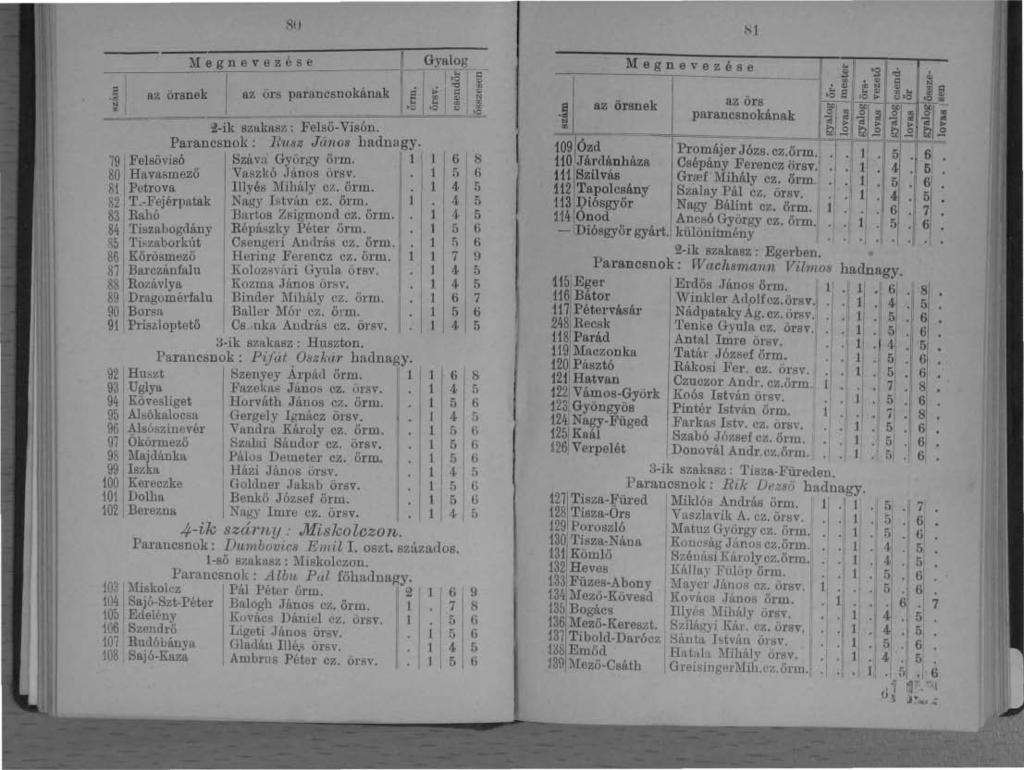 80
Megnevezése Gyalog
szám az örsnek az örs parancsnokának örm. örsv. csendőr összesen
2-ik szakasz: Felső-Visón.
Parancsnok: Rusz János hadnagy.
79 Felsővisó Száva György örm. 1 1 6 8
80 Havasmező Vaszkó János örsv. . 1 5 6
81 Petrova Illyés Mihály cz. örm. . 1 4 5
82 T.-Fejérpatak Nagy István cz. örm. 1 . 4 5
83 Rahó Bartos Zsigmond cz. örm. . 1 4 5
84 Tiszabogdány Répászky Péter örm. . 1 5 6
85 Tiszaborkút Csengeri András cz. örm. . 1 5 6
86 Körösmező Hering Ferencz cz. örm. 1 1 7 9
87 Barczánfalu Kolozsvári Gyula örsv. . 1 4 5
88 Rozávlya Kozma János örsv. . 1 4 5
89 Dragomérfalu Binder Mihály cz. örm. . 1 6 7
90 Borsa Baller Mór cz. örm. . 1 5 6
91 Priszloptető András cz. örsv. . 1 4 5
3-ik szakasz: Huszton.
Parancsnok: Piját Oszkár hadnagy.
92 Huszt Szenyey Árpád örm. 1 1 6 8
93 Uglya Fazekas János cz. örsv. . 1 4 5
94 Kövesliget Horváth János cz. örm. . 1 5 6
95 Alsókalocsa Gergely Ignácz örsv. . 1 4 5
96 Alsószinevér Vandra Károly cz. örm. . 1 5 6
97 Ökörmező Szalai Sándor cz. örsv. . 1 5 6
98 Majdánka Pálos Demeter cz. örm. . 1 5 6
99 Iszka Házi János örsv. . 1 4 5
100 Kereczke Goldner Jakab örsv. . 1 5 6
101 Dolha Benkő József örm. . 1 5 6
102 Berezna Nagy Imre cz. örsv. . 1 4 5
4-ik szárny: Miskolczon.
Parancsnok: Dumbovics Emil I. oszt. százados.
1-ső szakasz: Miskolczon.
Parancsnok: Albu Pál főhadnagy.
103 Miskolcz Pál Péter örm. 2 1 6 9
104 Sajó-Szt-Péter Balogh János cz. örm. 1 . 7 8
105 Edelény Kovács Dániel cz. örsv. 1 . 5 6
106 Szendrő Ligeti János örsv. . 1 5 6
107 Rudóbánya Gladán Illés örsv. . 1 4 5
108 Sajó-Kaza Ambrus Péter cz. örsv. . 1 5 6
81
Megnevezése
szám az örsnek az örs parancsnokának gyalog lovas ör-mester gyalog lovas örs-vezető gyalog lovas csend-ör gyalog lovas össze-sen
109 Ózd Promájer Józs. cz. örm. . . 1 . 5 . 6 .
110 Járdánháza Csépány Ferencz örsv. . . 1 . 4 . 5 .
111 Szilvás Græf Mihály cz. örm. . . 1 . 5 . 6 .
112 Tapolcsány Szalay Pál cz. örsv. . . 1 . 4 . 5 .
113 Diósgyőr Nagy Bálint cz. örm. 1 . . . 6 . 7 .
114 Ónod Ancsó György cz. örm. . . 1 . 5 . 6 .
— Diósgyőr gyárt. különitmény . . . . . . . .
2-ik szakasz: Egerben.
Parancsnok: Wachsmann Vilmos hadnagy.
115 Eger Erdős János örm. 1 . 1 . 6 . 8 .
116 Bátor Winkler Adolf cz. örsv. . . 1 . 4 . 5 .
117 Pétervásár Nádpataky Ág. cz. örsv. . . 1 . 5 . 6 .
248 Recsk Tenke Gyula cz. örsv. . . 1 . 5 . 6 .
118 Parád Antal Imre örsv. . . 1 . 4 . 5 .
119 Maczonka Tatár József örm. . . 1 . 5 . 6 .
120 Pásztó Rákosi Fer. cz. örsv. . . 1 . 5 . 6 .
121 Hatvan Czuczor Andr. cz. örm. 1 . . . 7 . 8 .
122 Vámos-Györk Koós István örsv. . . 1 . 5 . 6 .
123 Gyöngyös Pintér István örm. 1 . . . 7 . 8 .
124 Nagy-Füged Farkas Istv. cz. örsv. . . 1 . 5 . 6 .
125 Kaál Szabó József cz. örm. . . 1 . 5 . 6 .
126 Verpelét Donovál Andr. cz. örm. . . 1 . 5 . 6 .
3-ik szakasz: Tisza-Füreden.
Parancsnok: Rik Dezső hadnagy.
127 Tisza-Füred Miklós András örm. 1 . 1 . 5 . 7 .
128 Tisza-Örs Vaszlavik A. cz. örsv. . . 1 . 5 . 6 .
129 Poroszló Matuz György cz. örm. . . 1 . 5 . 6 .
130 Tisza-Nána Koncság János cz. örm. . . 1 . 4 . 5 .
131 Kömlő Szénási Károly cz. örm. . . 1 . 4 . 5 .
132 Heves Kállay Fülöp örm. . . 1 . 5 . 6 .
133 Füzes-Abony Mayer János cz. örsv. 1 . . . 5 . 6 .
134 Mező-Kövesd Kovács János örm. . 1 . . . 6 . 7
135 Bogács Illyés Mihály örsv. . . 1 . 4 . 5 .
136 Mező-Kereszt. Szilágyi Kár. cz. örsv. . . 1 . 4 . 5 .
137 Tibold-Darócz Sánta István örsv. . . 1 . 5 . 6 .
138 Emőd Hatala Mihály örsv. . . 1 . 4 . 5 .
139 Mező-Csáth Greisinger Mih. cz. örm. . . . 1 . 5 . 6